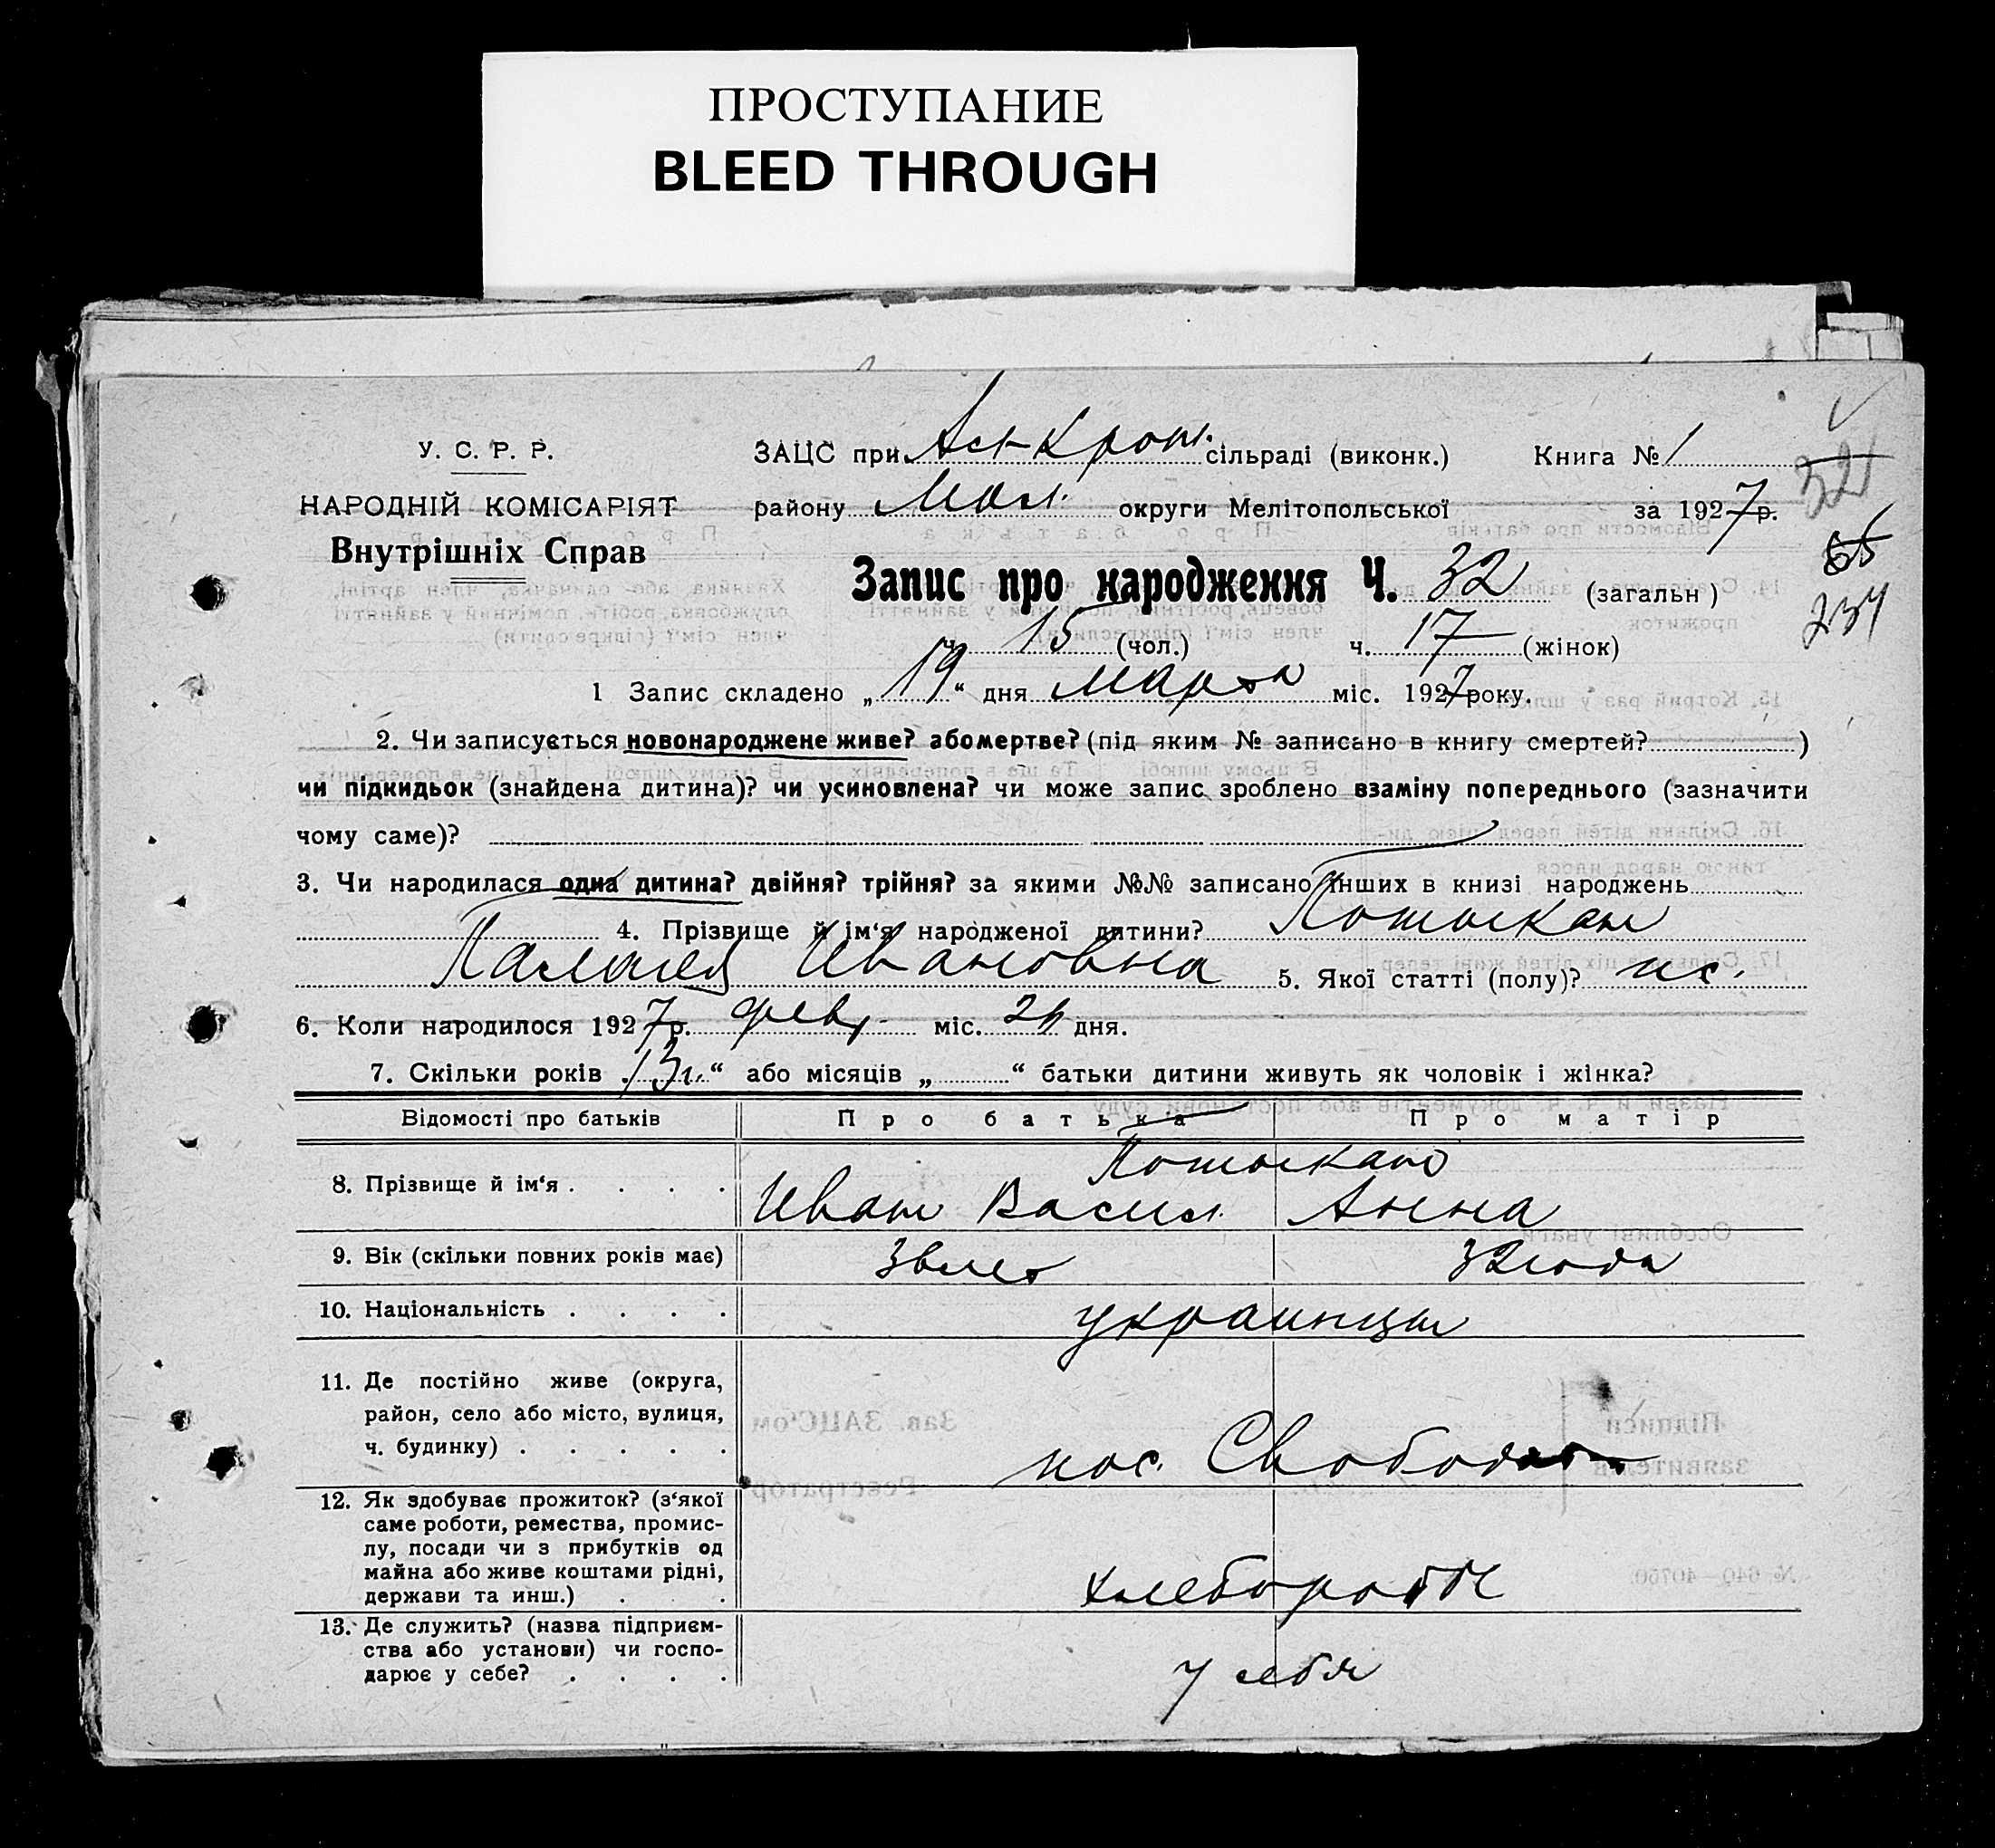 ПРОСТУПАНИЕ
BLEED THROUGH
У. С. Р. Р.
ЗАЦС при сільраді (виконк.) Книга № 1
НАРОДНІЙ КОМІСАРІЯТ
району округи Мелітопольської за 1927р.
Внутрішніх Справ
Запис про народження Ч. 32 (загальн)
15 (чол.) ч. 17 (жінок)
234
1 Запис складено „19“ дня марта міс. 1927 року.
2. Чи записується новонароджене живе? або мертве? (під яким № записано в книгу смертей? )
чи підкидьок (знайдена дитина)? чи усиновлена? чи може запис зроблено взаміну попереднього (зазначити
чому саме)?
3. Чи народилася одна дитина? двійня? трійня? за якими №№ записано інших в книзі народжень
4. Прізвище й ім‘я народженої дитини?
Ивановна 5. Якої статті (полу)?
6. Коли народилося 1927р. февр. міс. дня.
7. Скільки років „13 “ або місяців „ “ батьки дитини живуть як чоловік і жінка?
Відомості про батьків Про батька Про матір
8. Прізвище й ім‘я . . . .
Иван Васил. Анна
9. Вік (скільки повних років має) 32 года
10. Національність . . . . украинцы
11. Де постійно живе (округа,
район, село або місто, вулиця,
ч. будинку) . . . . .
пос.
12. Як здобуває прожиток? (з‘якої
саме роботи, ремества, промис-
лу, посади чи з прибутків од
майна або живе коштами рідні,
держави та инш.) . .
13. Де служить? (назва підприєм-
ства або установи) чи госпо-
дарює у себе? . . . .
у себя